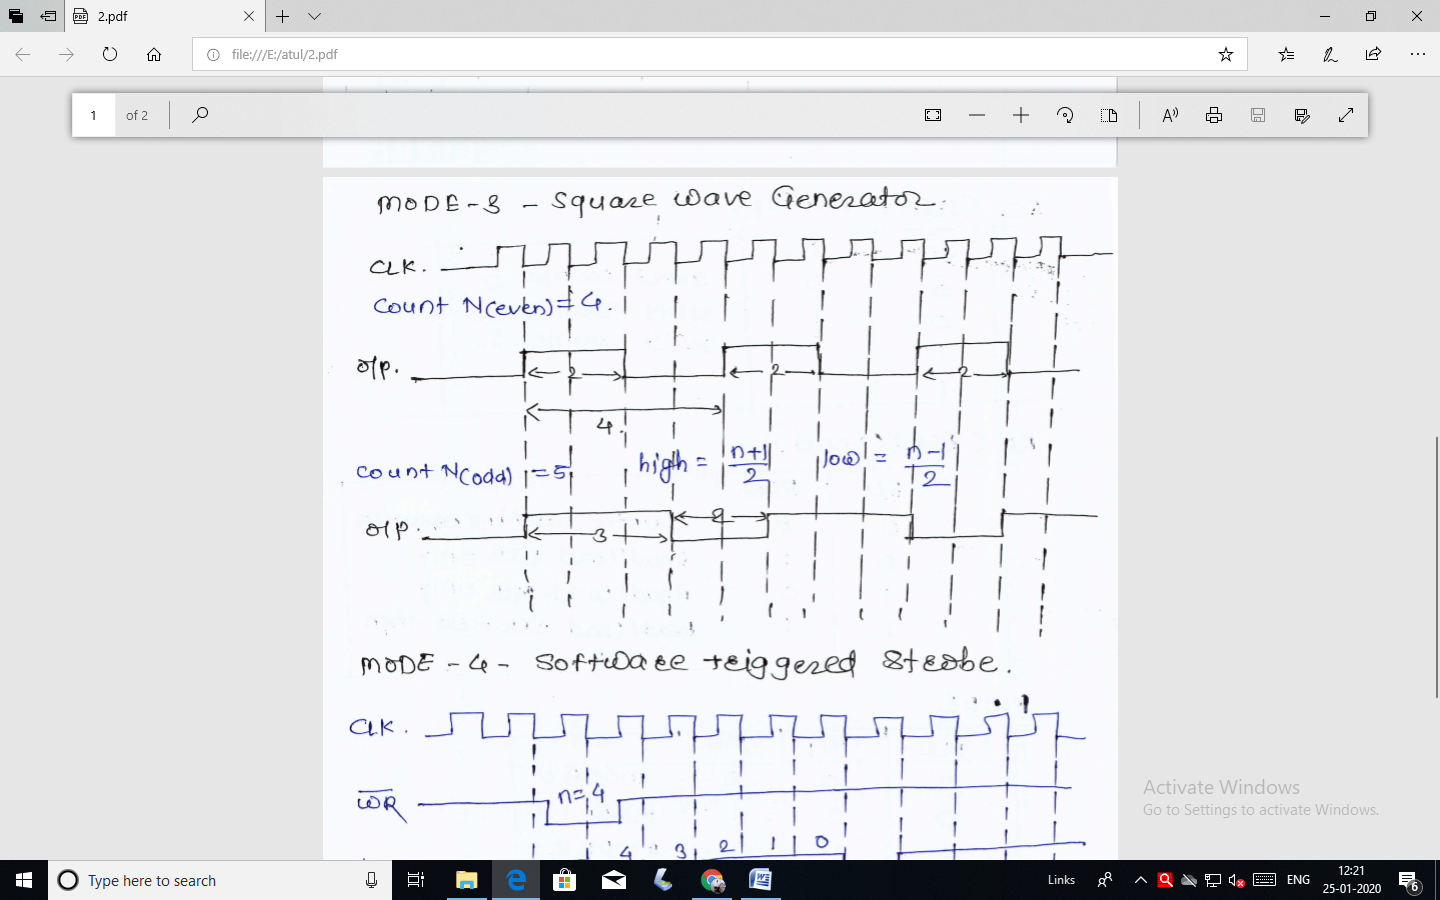 2.pdf
file:///E:/atul/2.pdf
1 of 2
MODE-3 - Square Wave Generator.
CLK.
Count N(even) = 4.
o/p.
2 2 2
4.
Count N(odd) = 5 high = n+1/2 low = n-1/2
o/p.
3 2
MODE-4 - Software triggered Strobe.
CLK.
n=4
W̅R̅
4 3 2 1 0
Activate Windows
Go to Settings to activate Windows.
Type here to search
Links
ENG
12:21
25-01-2020
6